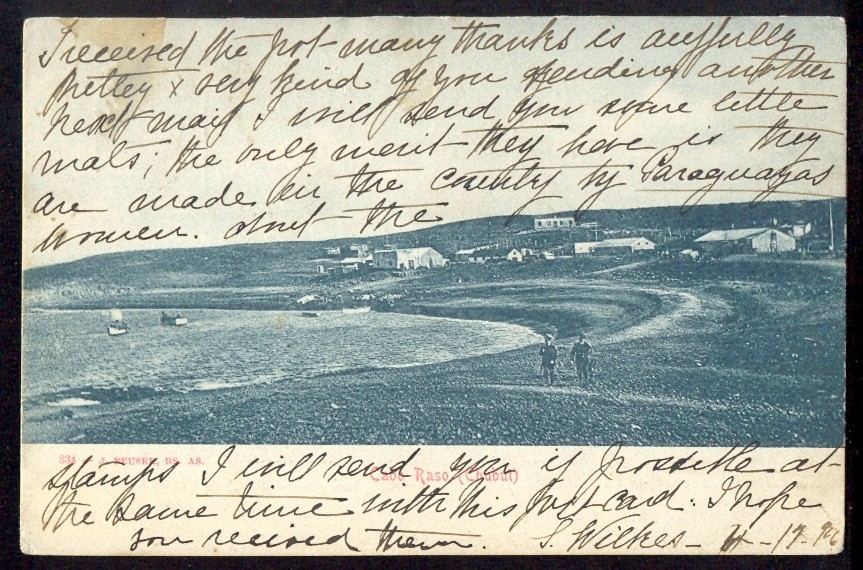 I received the pot - many thanks is awfully
pretty x very kind of you sending another
next mail I will send you some little
mats; the only merit they have is they
are made in the country by Paraguayas
women. about the
334 - J. PEUSER, BS. AS.
Cabo Raso (Chubut)
stamps I will send you if possible at
the same time with this post card. I hope
you received them. S. Wilkes -